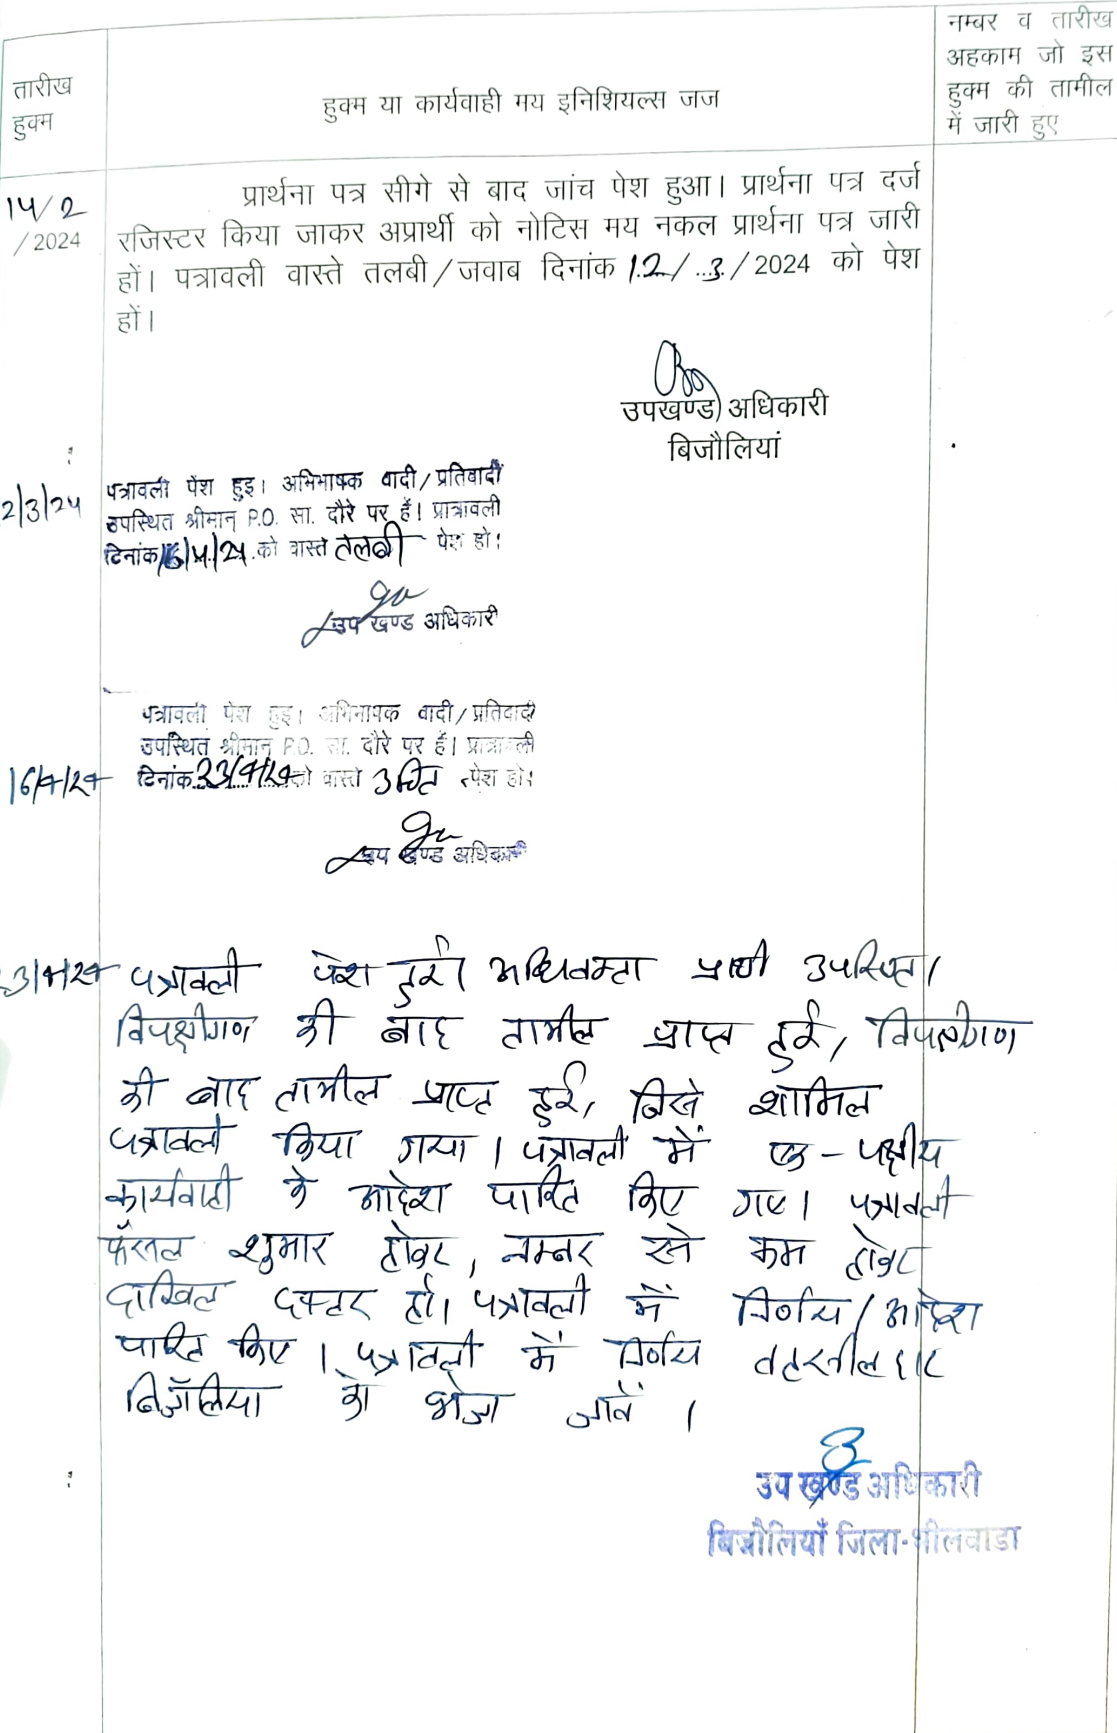 तारीख
हुक्म
हुक्म या कार्यवाही मय इनिशियल्स जज
नम्बर व तारीख
अहकाम जो इस
हुक्म की तामील
में जारी हुए
14/2
/2024
प्रार्थना पत्र सीगे से बाद जांच पेश हुआ। प्रार्थना पत्र दर्ज
रजिस्टर किया जाकर अप्रार्थी को नोटिस मय नकल प्रार्थना पत्र जारी
हों। पत्रावली वास्ते तलबी/जवाब दिनांक 12/3/2024 को पेश
हों।
उपखण्ड अधिकारी
बिजौलियां
2/3/24
पत्रावली पेश हुइ। अभिभाषक वादी/प्रतिवादी
उपस्थित श्रीमान् P.O. सा. दौरे पर हैं। प्रात्रावली
दिनांक 16/4/24 को वास्ते तलबी पेश हो।
उप खण्ड अधिकारी
16/4/24
पत्रावली पेश हुइ। अभिभाषक वादी/प्रतिवादी
उपस्थित श्रीमान् P.O. सा. दौरे पर हैं। प्रात्रावली
दिनांक 23/4/24 को वास्ते पेश हो।
उप खण्ड अधिकारी
3/4/24
पत्रावली पेश हुई। अधिवक्ता प्रार्थी उपस्थित।
विपक्षीगण की बाद तामील प्राप्त हुई, विपक्षीगण
की बाद तामील प्राप्त हुई, जिसे शामिल
पत्रावली किया गया। पत्रावली में एक-पक्षीय
कार्यवाही के आदेश पारित किए गए। पत्रावली
फैसल शुमार होकर, नम्बर से कम होकर
दाखिल दफ्तर हो। पत्रावली में निर्णय/आदेश
पारित किए। पत्रावली में निर्णय तहसीलदार
बिजौलिया को भेजा जावें।
उप खण्ड अधिकारी
बिजौलियाँ जिला-भीलवाडा